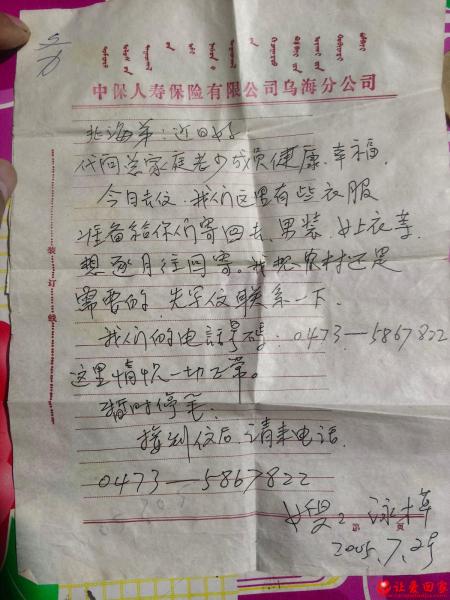 中保人寿保险有限公司乌海分公司
北海弟:近日好
代问兰家庭老少成员健康、幸福.
今日去信.我们这里有些衣服
准备给你们寄回去.男装、女上衣等.
想逐月往回寄。我想农村还是
需要的.先写信联系一下.
我们的电话号码:0473—5867822
这里情况一切正常。
暂时停笔.
接到信后.请来电话.
0473—5867822
装订线
第 页
2005.7.25
让爱回家